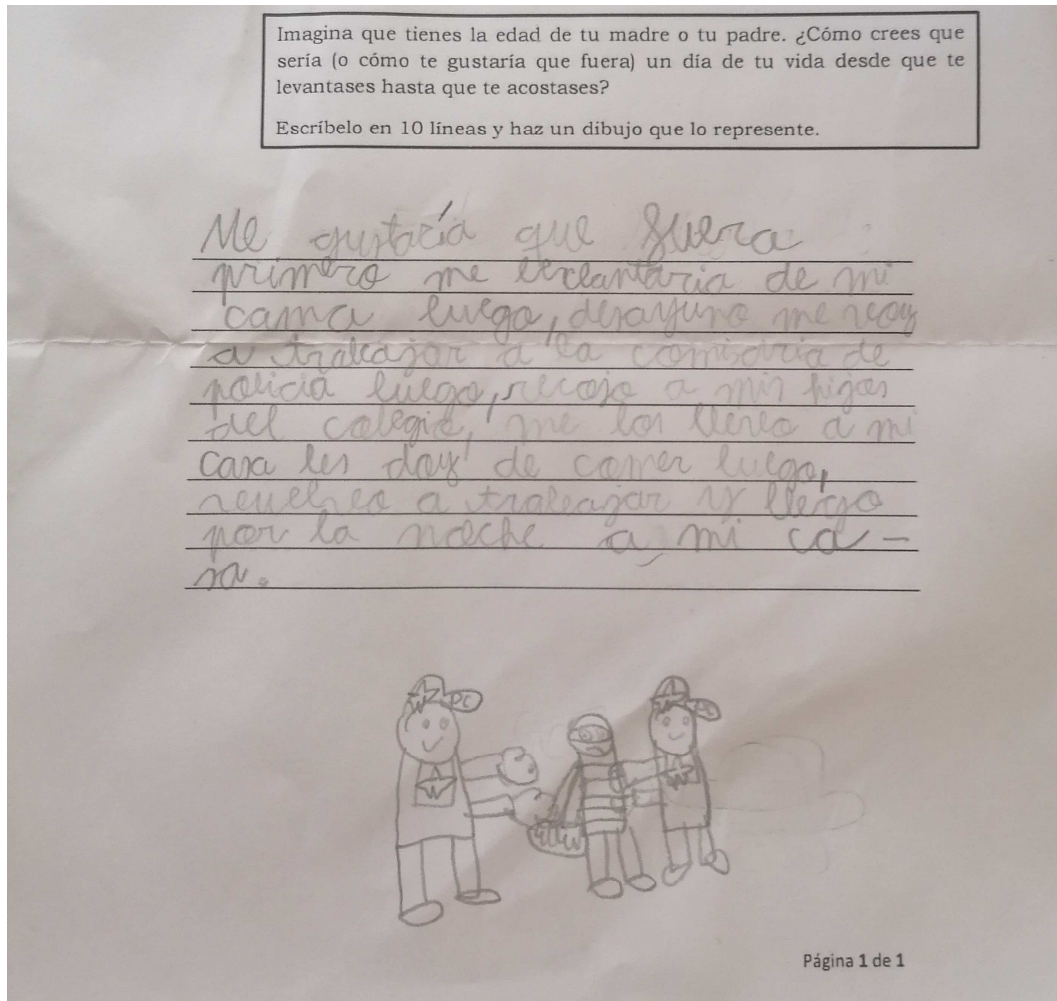 Imagina que tienes la edad de tu madre o tu padre. ¿Cómo crees que
sería (o cómo te gustaría que fuera) un día de tu vida desde que te
levantases hasta que te acostases?
Escríbelo en 10 líneas y haz un dibujo que lo represente.
Me gustaría que fuera
primero me levantaria de mi
cama luego, desayuno me voy
a trabajar a la comisaria de
policia luego, recojo a mis hijos
del colegio, me los llevo a mi
casa les doy de comer luego,
vuelvo a trabajar y llego
por la noche a mi ca-
sa.
PC
PC
Página 1 de 1